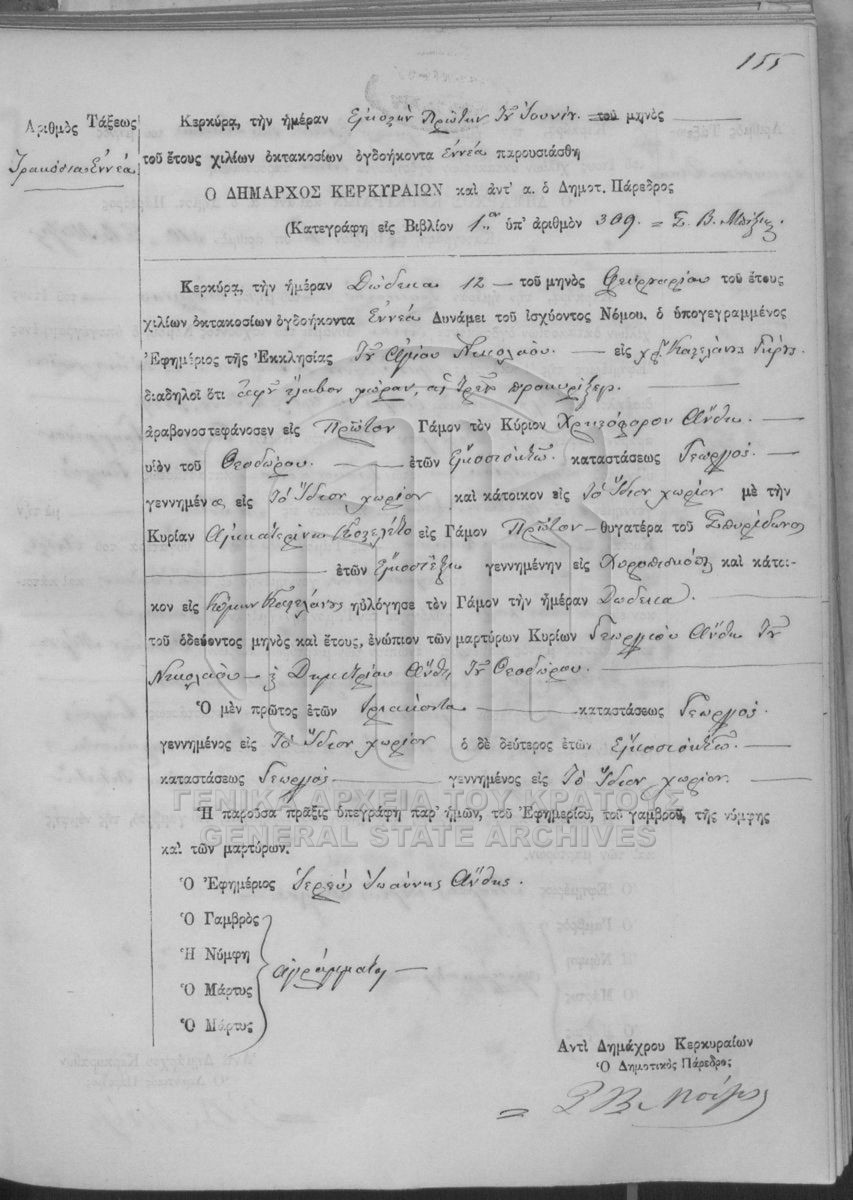 155
Ἀριθμὸς Τάξεως
Τρακόσια Ἐννέα
Κερκύρᾳ, τὴν ἡμέραν Εἰκοστὴν Πρώτην τοῦ Ἰουνίου τοῦ μηνὸς
τοῦ ἔτους χιλίων ὀκτακοσίων ὀγδοήκοντα ἐννέα παρουσιάσθη
Ὁ ΔΗΜΑΡΧΟΣ ΚΕΡΚΥΡΑΙΩΝ καὶ ἀντ' α. ὁ Δημοτ. Πάρεδρος
(Κατεγράφη εἰς Βιβλίον 1ον ὑπ' ἀριθμὸν 309. = Σ. Β.
Κερκύρᾳ, τὴν ἡμέραν Δώδεκα 12 — τοῦ μηνὸς Φευρουαρίου τοῦ ἔτους
χιλίων ὀκτακοσίων ὀγδοήκοντα Ἐννέα Δυνάμει τοῦ ἰσχύοντος Νόμου. ὁ ὑπογεγραμμένος
Ἐφημέριος τῆς Ἐκκλησίας Τοῦ Ἁγίου Νικολάου. — εἰς
διαδηλοῖ ὅτι ἀφοῦ ἔλαβον χώραν, αἱ τρεῖς προκυρίξεις.
ἀραβονοστεφάνοσεν εἰς Πρῶτον Γάμον τὸν Κύριον Χριστόφορον Ἄνθη. —
υἱὸν τοῦ Θεοδώρου. — ἐτῶν Εἰκοσιοκτὼ. καταστάσεως Γεωργός. —
γεννημένος εἰς Τὸ Ἴδιον χωρίον καὶ κάτοικον εἰς Τὸ Ἴδιον χωρίον μὲ τὴν
Κυρίαν Αἰκατερίνην εἰς Γάμον Πρῶτον — θυγατέρα τοῦ Σπυρίδωνος
— ἐτῶν Εἰκοσιέξι γεννημένην εἰς Χωροπισκόπι καὶ κάτοι-
κον εἰς ηὐλόγησε τὸν Γάμον τὴν ἡμέραν Δώδεκα.
τοῦ ὁδεύοντος μηνὸς καὶ ἔτους, ἐνώπιον τῶν μαρτύρων Κυρίων Γεωργίου Ἄνθη Τοῦ
Νικολάου — Δημητρίου Ἄνθη Τοῦ Θεοδώρου. —
Ὁ μὲν πρῶτος ἐτῶν τριακοντα — καταστάσεως Γεωργός.
γεννημένος εἰς Τὸ Ἴδιον χωρίον ὁ δὲ δεύτερος ἐτῶν Εἰκοσιοκτώ. —
καταστάσεως Γεωργός — γεννημένος εἰς Τὸ Ἴδιον χωρίον. —
ΓΕΝΙΚΑ ΑΡΧΕΙΑ ΤΟΥ ΚΡΑΤΟΥΣ
Ἡ παροῦσα πρᾶξις ὑπεγράφη παρ' ἡμῶν, τοῦ Ἐφημερίου, τοῦ γαμβροῦ, τῆς νύμφης
GENERAL STATE ARCHIVES
καὶ τῶν μαρτύρων.
Ὁ Ἐφημέριος Ἱερεὺς Ἰωάννης Ἄνθης.
Ὁ Γαμβρὸς
Ἡ Νύμφη
ἀγράμματοι —
Ὁ Μάρτυς
Ὁ Μάρτυς
Ἀντὶ Δημάχρου Κερκυραίων
Ὁ Δημοτικὸς Πάρεδρος